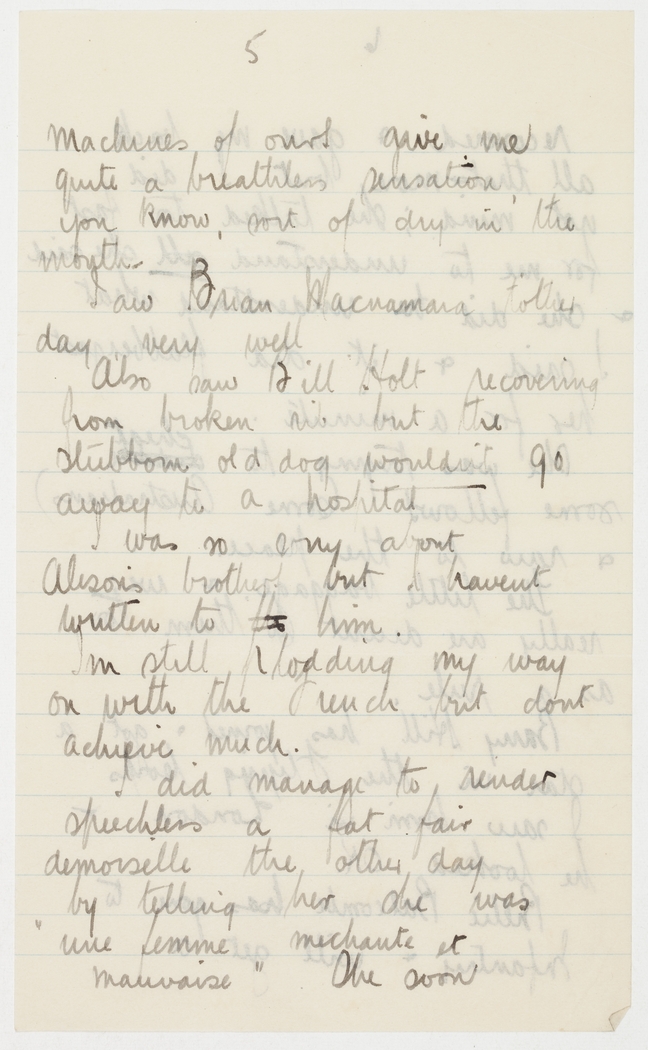 5
machines of ours give me
quite a breathless sensation,
you know, sort of dryin' the
mouth —
Saw Brian Macnamara t'other
day very well
Also saw Bill Holt recovering
from broken rib but the
stubborn old dog wouldn't go
away to a hospital
I was so sorry about
Alison's brother but I havent
written to him.
I'm still plodding my way
on with the French but dont
achieve much.
I did manage to render
speechless a fat fair
demoiselle the other day
by telling her she was
"une femme mechante et
mauvaise" She soon